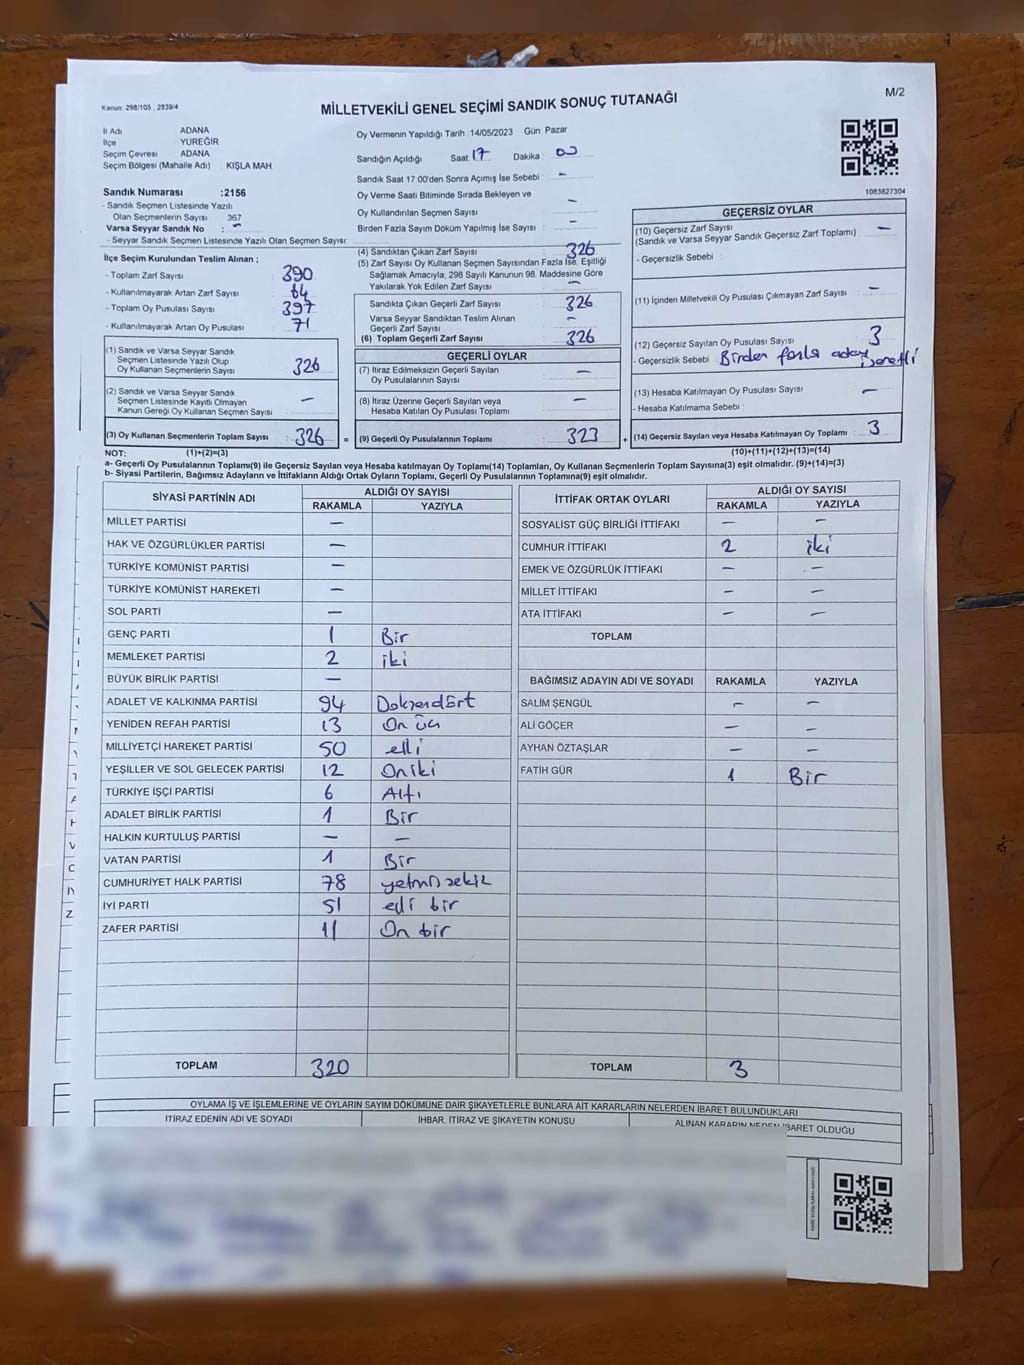 M/2
Kanun: 298/105 , 2839/4
MİLLETVEKİLİ GENEL SEÇİMİ SANDIK SONUÇ TUTANAĞI
İl Adı ADANA
İlçe YÜREĞİR
Seçim Çevresi ADANA
Seçim Bölgesi (Mahalle Adı) : KIŞLA MAH.
Sandık Numarası :2156
- Sandık Seçmen Listesinde Yazılı
Olan Seçmenlerin Sayısı : 367
Varsa Seyyar Sandık No : -
- Seyyar Sandık Seçmen Listesinde Yazılı Olan Seçmen Sayısı:
Oy Vermenin Yapıldığı Tarih :14/05/2023 Gün: Pazar
Sandığın Açıldığı Saat 17 Dakika : 00
Sandık Saat 17:00'den Sonra Açılmış İse Sebebi : -
Oy Verme Saati Bitiminde Sırada Bekleyen ve
Oy Kullandırılan Seçmen Sayısı -
Birden Fazla Sayım Döküm Yapılmış İse Sayısı : -
1083827304
İlçe Seçim Kurulundan Teslim Alınan ;
- Toplam Zarf Sayısı : 390
- Kullanılmayarak Artan Zarf Sayısı : 64
- Toplam Oy Pusulası : 397
- Kullanılmayarak Artan Oy Pusulası : 71
(1) Sandık ve Varsa Seyyar Sandık
Seçmen Listesinde Yazılı Olup
Oy Kullanan Seçmenlerin Sayısı : 326
(2) Sandık ve Varsa Seyyar Sandık
Seçmen Listesinde Kayıtlı Olmayan
Kanun Gereği Oy Kullanan Seçmen Sayısı : -
(3) Oy Kullanan Seçmenlerin Toplam Sayısı : 326 =
(4) Sandıktan Çıkan Zarf Sayısı : 326
(5) Zarf Sayısı Oy Kullanan Seçmen Sayısından Fazla İse, Eşitliği
Sağlamak Amacıyla; 298 Sayılı Kanunun 98. Maddesine Göre
Yakılarak Yok Edilen Zarf Sayısı : -
Sandıkta Çıkan Geçerli Zarf Sayısı : 326
Varsa Seyyar Sandıktan Teslim Alınan
Geçerli Zarf Sayısı : -
(6) Toplam Geçerli Zarf Sayısı : 326
GEÇERLİ OYLAR
(7) İtiraz Edilmeksizin Geçerli Sayılan
Oy Pusulalarının Sayısı : -
(8) İtiraz Üzerine Geçerli Sayılan veya
Hesaba Katılan Oy Pusulası Toplamı : -
(9) Geçerli Oy Pusulalarının Toplamı : 323 +
GEÇERSİZ OYLAR
(10) Geçersiz Zarf Sayısı : -
(Sandık ve Varsa Seyyar Sandık Geçersiz Zarf Toplamı)
- Geçersizlik Sebebi :
(11) İçinden Milletvekili Oy Pusulası Çıkmayan Zarf Sayısı : -
(12) Geçersiz Sayılan Oy Pusulası Sayısı : 3
- Geçersizlik Sebebi : Birden fazla aday işaretli
(13) Hesaba Katılmayan Oy Pusulası Sayısı : -
- Hesaba Katılmama Sebebi :
(14) Geçersiz Sayılan veya Hesaba Katılmayan Oy Toplamı : 3
NOT: (1)+(2)=(3) (10)+(11)+(12)+(13)=(14)
a- Geçerli Oy Pusulalarının Toplamı(9) ile Geçersiz Sayılan veya Hesaba katılmayan Oy Toplamı(14) Toplamları, Oy Kullanan Seçmenlerin Toplam Sayısına(3) eşit olmalıdır. (9)+(14)=(3)
b- Siyasi Partilerin, Bağımsız Adayların ve İttifakların Aldığı Ortak Oyların Toplamı, Geçerli Oy Pusulalarının Toplamına(9) eşit olmalıdır.
SİYASİ PARTİNİN ADI ALDIĞI OY SAYISI
RAKAMLA YAZIYLA
MİLLET PARTİSİ -
HAK VE ÖZGÜRLÜKLER PARTİSİ -
TÜRKİYE KOMÜNİST PARTİSİ -
TÜRKİYE KOMÜNİST HAREKETİ -
SOL PARTİ -
GENÇ PARTİ 1 Bir
MEMLEKET PARTİSİ 2 iki
BÜYÜK BİRLİK PARTİSİ -
ADALET VE KALKINMA PARTİSİ 94 Doksandört
YENİDEN REFAH PARTİSİ 13 On üç
MİLLİYETÇİ HAREKET PARTİSİ 50 elli
YEŞİLLER VE SOL GELECEK PARTİSİ 12 Oniki
TÜRKİYE İŞÇİ PARTİSİ 6 Altı
ADALET BİRLİK PARTİSİ 1 Bir
HALKIN KURTULUŞ PARTİSİ - -
VATAN PARTİSİ 1 Bir
CUMHURİYET HALK PARTİSİ 78 yetmiş sekiz
İYİ PARTİ 51 elli bir
ZAFER PARTİSİ 11 On bir
TOPLAM 320
İTTİFAK ORTAK OYLARI ALDIĞI OY SAYISI
RAKAMLA YAZIYLA
SOSYALİST GÜÇ BİRLİĞİ İTTİFAKI - -
CUMHUR İTTİFAKI 2 iki
EMEK VE ÖZGÜRLÜK İTTİFAKI - -
MİLLET İTTİFAKI - -
ATA İTTİFAKI - -
TOPLAM
BAĞIMSIZ ADAYIN ADI VE SOYADI RAKAMLA YAZIYLA
SALİM ŞENGÜL - -
ALİ GÖÇER - -
AYHAN ÖZTAŞLAR - -
FATİH GÜR 1 Bir
TOPLAM 3
OYLAMA İŞ VE İŞLEMLERİNE VE OYLARIN SAYIM DÖKÜMÜNE DAİR ŞİKAYETLERLE BUNLARA AİT KARARLARIN NELERDEN İBARET BULUNDUKLARI
İTİRAZ EDENİN ADI VE SOYADI İHBAR, İTİRAZ VE ŞİKAYETİN KONUSU ALINAN KARARIN NEDEN İBARET OLDUĞU